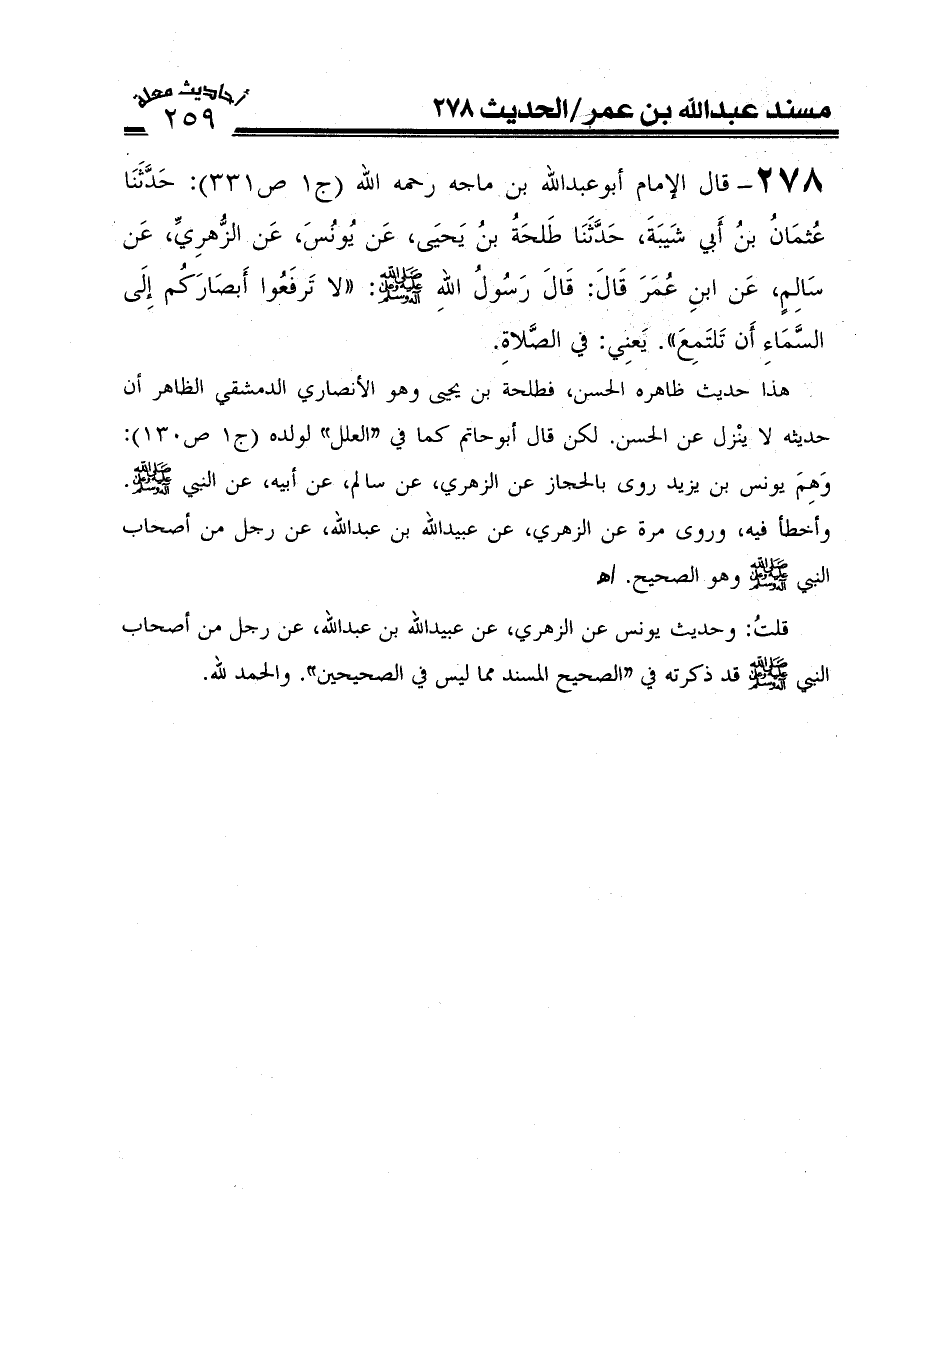 مسند عبدالله بن عمر/الحديث ٢٧٨
أحاديث معلة
٢٥٩
٢٧٨ – قال الإمام أبوعبدالله بن ماجه رحمه الله (ج١ ص٣٣١): حَدَّثَنَا
عُثمَانُ بنُ أَبي شَيبَةَ، حَدَّثَنَا طَلحَةُ بنُ يَحيَى، عَن يُونُسَ، عَن الزُّهرِيِّ، عَن
سَالِمٍ، عَن ابنِ عُمَرَ قَالَ: قَالَ رَسُولُ اللهِ ﷺ: «لا تَرفَعُوا أَبصَارَكُم إِلَى
السَّمَاءِ أَن تَلتَمِعَ». يَعنِي: فِي الصَّلاةِ.
هذا حديث ظاهره الحسن، فطلحة بن يحيى وهو الأنصاري الدمشقي الظاهر أن
حديثه لا ينْزل عن الحسن. لكن قال أبوحاتم كما في "العلل" لولده (ج١ ص١٣٠):
وَهِمَ يونس بن يزيد روى بالحجاز عن الزهري، عن سالم، عن أبيه، عن النبي ﷺ.
وأخطأ فيه، وروى مرة عن الزهري، عن عبيدالله بن عبدالله، عن رجل من أصحاب
النبي ﷺ وهو الصحيح. اﻫ
قلتُ: وحديث يونس عن الزهري، عن عبيدالله بن عبدالله، عن رجل من أصحاب
النبي ﷺ قد ذكرته في "الصحيح المسند مما ليس في الصحيحين". والحمد لله.